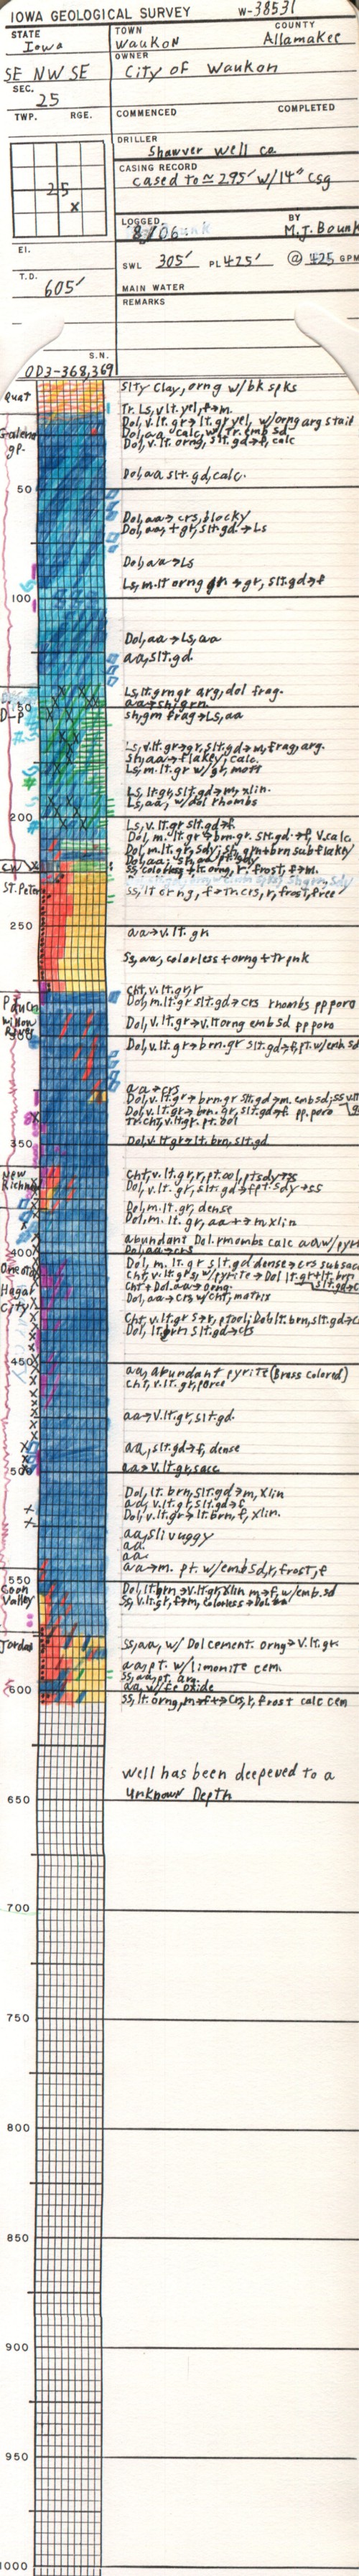 IOWA GEOLOGICAL SURVEY W-38531
STATE
Iowa
TOWN
Waukon
COUNTY
Allamakee
OWNER
City of Waukon
SE NW SE
SEC.
25
TWP. RGE.
COMMENCED COMPLETED
DRILLER
Shawver Well Co
CASING RECORD
cased to ≈ 295' w/14" csg
25
X
LOGGED
8/06
BY
M.J. Bounk
El.
SWL 305' PL 425' @ 425 GPM
T.D.
605'
MAIN WATER
REMARKS
S.N.
OD3-368,369
Quat
Slty Clay, orng w/bk spks
Tr. Ls, v.lt. yel, f→m.
Galena
gp.
Dol, v.lt.gr→lt.gr yel, w/orng arg stain
Dol, aa calc, w/Tr. emb sd
Dol, v.lt. orng, slt.gd→f, calc
Dol, aa slt.gd, calc.
50
Dol, aa→crs, blocky
Dol, aa, +gr, slt.gd.→Ls
Dol, aa→Ls
Ls, m.lt orng gn→gr, slt.gd→f
100
Dol, aa→Ls, aa
aa, slt.gd.
Ls, lt.grngr arg, dol frag.
aa→sh, grn
150
D-P
sh, grn frag→Ls, aa
Ls, v.lt.gr→gr, slt.gd→m, frag, arg.
Sh, aa→flakey, calc.
Ls, m.lt.gr w/gr, mott
Ls, ltgr, slt.gd→m, xlin.
Ls, aa, w/dol rhombs
200
Ls, v.lt.gr slt.gd→f
Dol, m.lt.gr→brn.gr. slt.gd→f, v.calc
Dol, m.lt.gr, sdy; sh, grn+brn subflakey
Dol, aa; sh, aa pt sdy
ss, colorless + lt.orng, r, frost, f→m.
St. Peter
ss, lt orng, f→Tr crs, r, frost, free
250
aa→v.lt.gn
Ss, aa, colorless + orng + Tr pnk
Cht, v.lt.gr, r
Dol, m.lt.gr slt.gd→crs rhombs pp poro
Willow
River
Dol, v.lt.gr→v.lt orng emb sd pp poro
300
Dol, v.lt.gr→brn.gr slt.gd→f, pt. w/emb. sd
aa→crs
Dol, v.lt.gr→brn.gr slt.gd→m. embsd; ss
Dol, v.lt.gr→brn.gr, slt.gd→f. pp. poro
Tr. cht, v.ltgr. pt. ool
350
Dol, v.lt.gr→lt. brn, slt.gd
New
Richmo
Cht, v.lt.gr, r, pt. ool, pt sdy→ss
Dol, v.lt.gr, slt.gd→f pt. sdy→ss
Dol, m.lt.gr, dense
Dol, m.lt.gr, aa +→m xlin
400
abundant Dol. rhombs calc aa w/pyri
Dol, aa→crs
Oneota
Dol, m. lt.gr slt.gd dense→crs subsac
Cht, v.lt.grs, w/pyrite→Dol lt.gr+lt.brn
slt.gd→c
Hagar
City
Cht + Dol. aa→orng
Dol, aa→crs w/cht, matrix
Dol, lt brn slt.gd→crs
450
aa, abundant pyrite (Brass Colored)
Cht, v.lt.gr, porce
aa→v.lt.gr, slt.gd.
aa, slt.gd→f, dense
500
aa→v.lt.gr, sacc
Dol, lt. brn, slt.gd→m, xlin
aa, v.lt.gr, slt.gd→f
Dol, v.lt.gr→lt.brn, f, xlin.
aa, sli vuggy
aa.
aa.
aa→m. pt. w/emb sd, r, frost, f
550
Coon
Valley
Dol, lt brn→v.lt.gr, xlin m→f, w/emb. sd
Ss, v.lt.gr, f→m, colorless→
Jordan
Ss, aa, w/ Dol cement. orng→v.lt.gr
aa, pt. w/limonite cem.
Ss, aa, pt. arg.
aa, w/fe oxide
600
ss, lt. orng, m→f→crs, r, frost calc cem
Well has been deepened to a
unknown Depth
650
700
750
800
850
900
950
1000